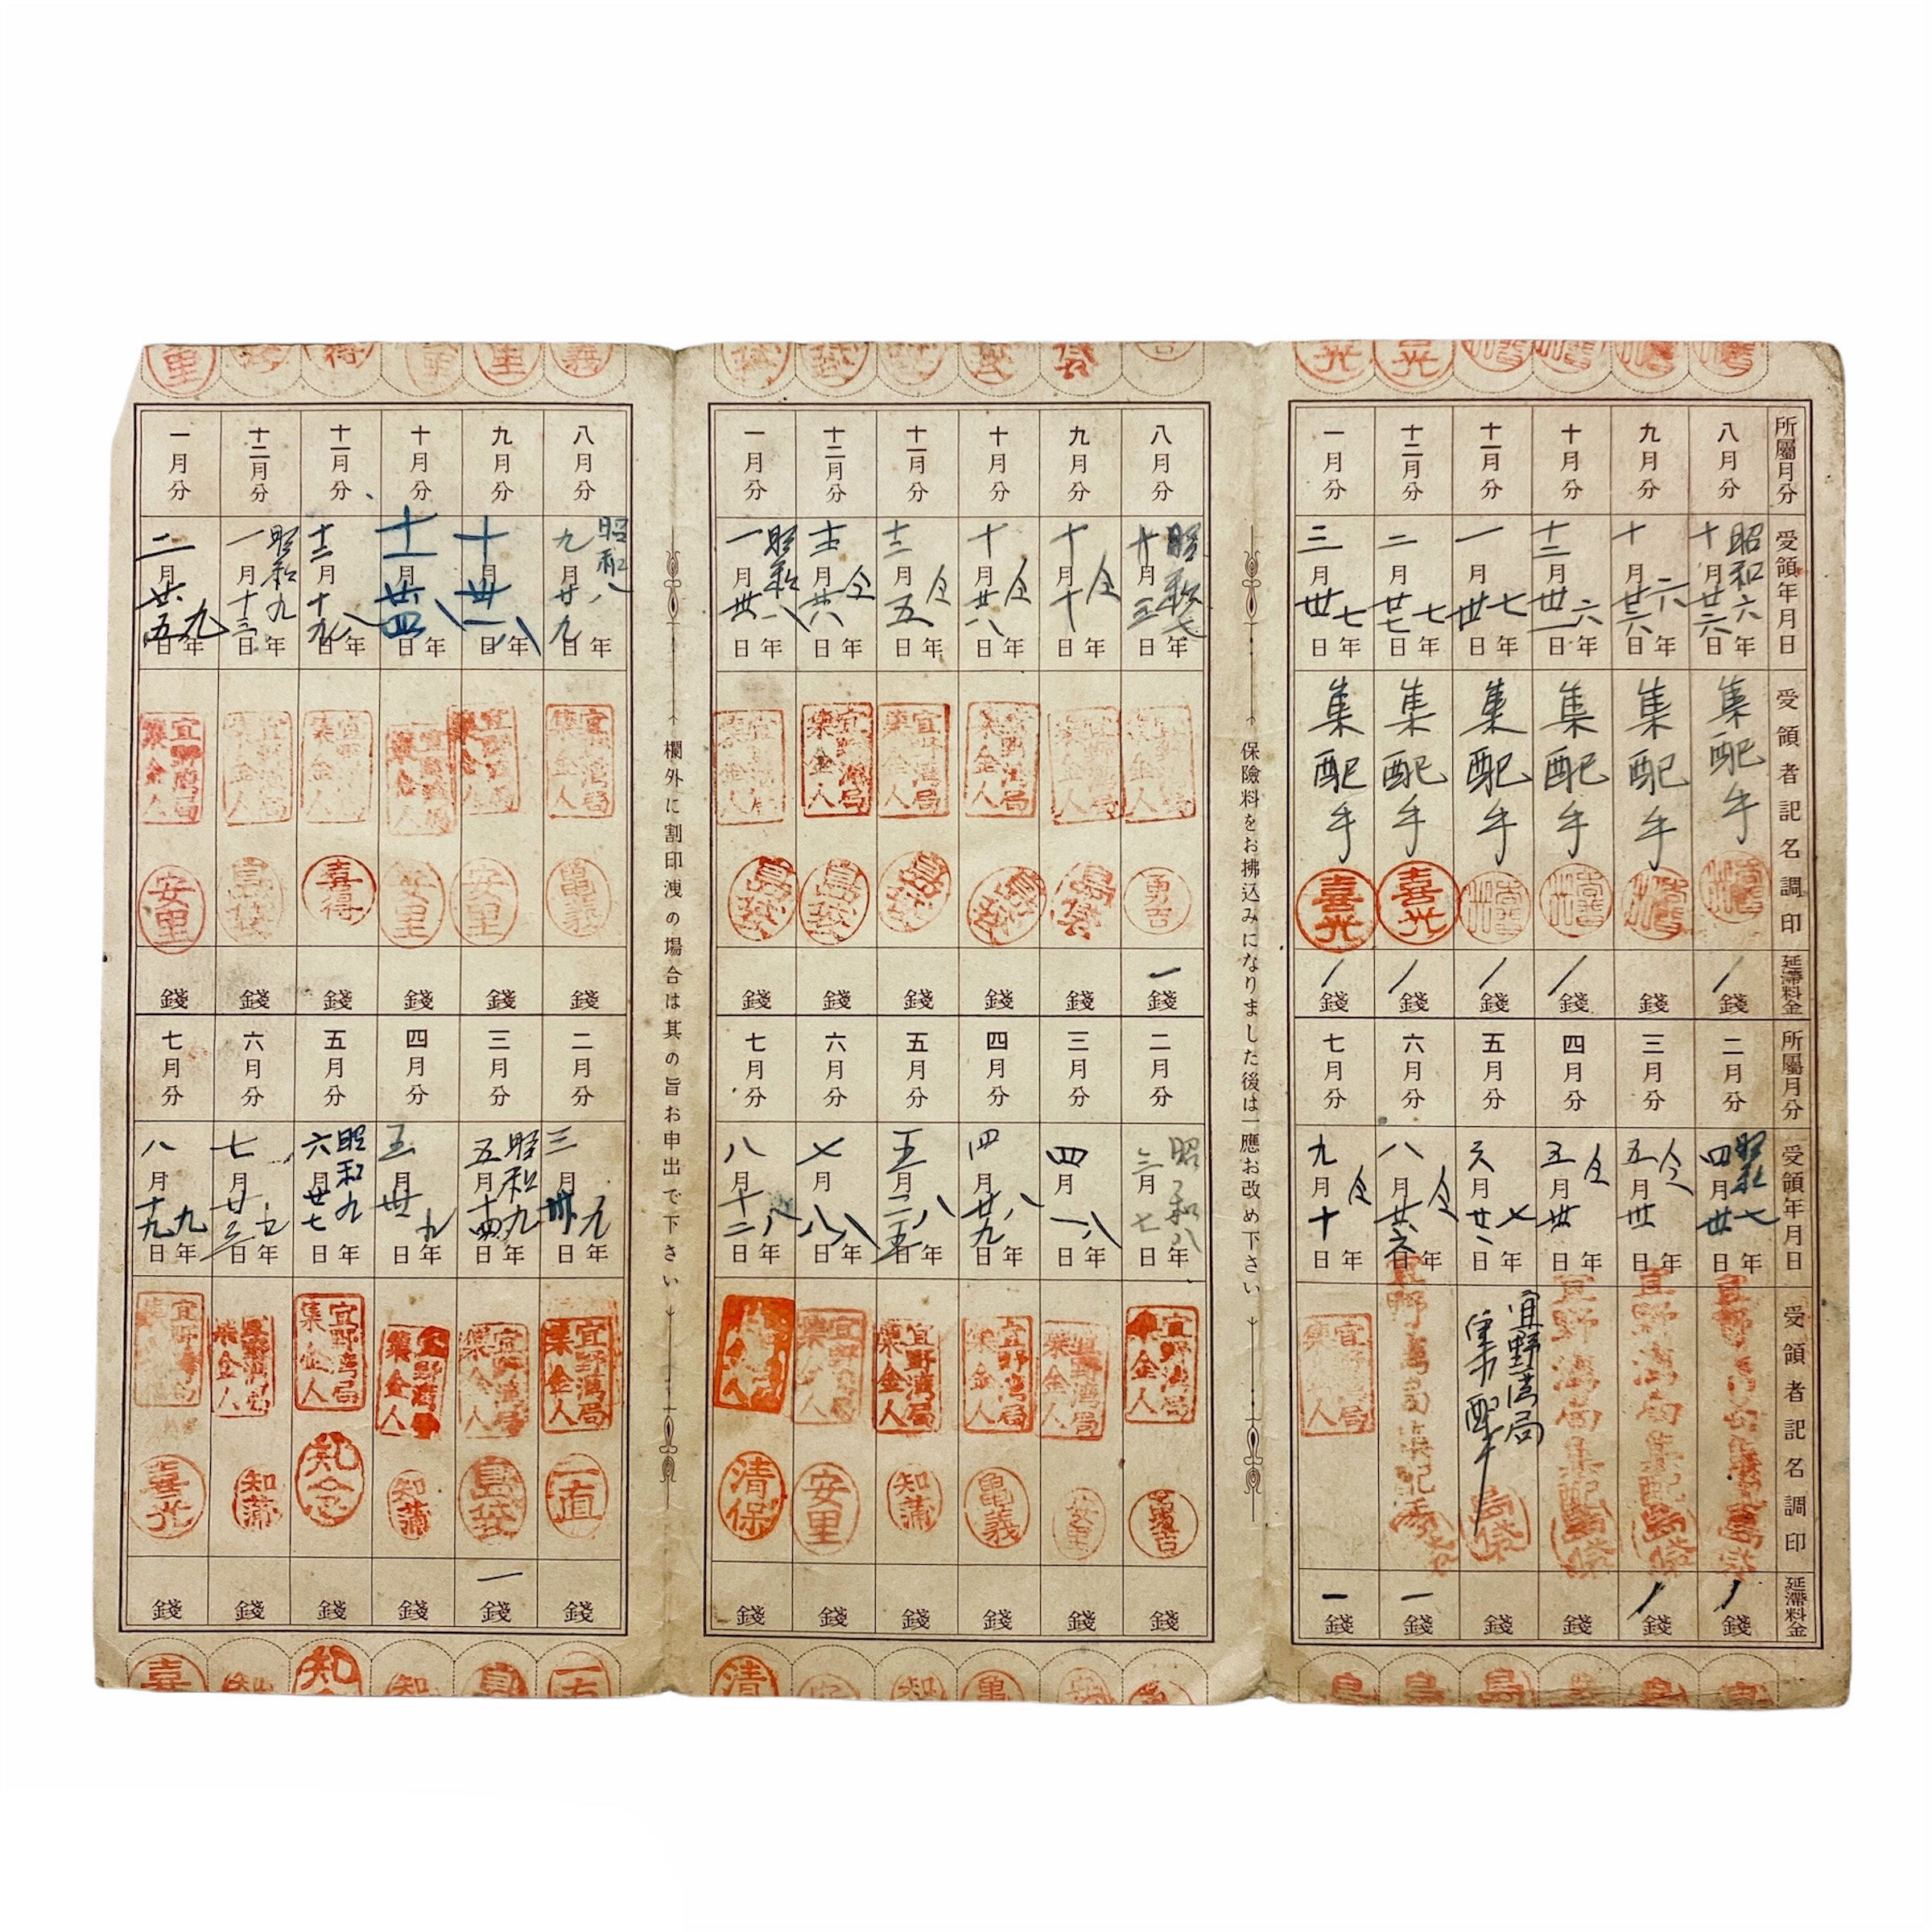 所屬月分
受領年月日
受領者記名調印
延滯料金
八月分
昭和六年
十月廿六日
集配手
錢
九月分
六年
十月廿六日
集配手
錢
十月分
六年
十二月卅一日
集配手
錢
十一月分
七年
一月卅日
集配手
錢
十二月分
七年
二月廿七日
集配手
喜光
錢
一月分
七年
三月卅日
集配手
喜光
錢
所屬月分
受領年月日
受領者記名調印
延滯料金
二月分
昭和七年
四月卅日
錢
三月分
仝年
五月卅日
宜野湾局集配手
錢
四月分
仝年
五月卅日
宜野湾局集配手
錢
五月分
七年
六月廿八日
宜野湾局
集配手
島袋
錢
六月分
仝年
八月廿六日
宜野湾局集配手
一錢
七月分
仝年
九月十日
宜野湾局
集金人
一錢
保險料をお拂込みになりました後は一應お改め下さい
八月分
昭和七年
十月三日
宜野湾局
集金人
勇吉
一錢
九月分
仝年
十月十日
宜野湾局
集金人
島袋
錢
十月分
仝年
十月廿八日
宜野湾局
集金人
島袋
錢
十一月分
仝年
十二月五日
宜野湾局
集金人
島袋
錢
十二月分
仝年
十二月廿八日
宜野湾局
集金人
島袋
錢
一月分
昭和八年
一月卅一日
宜野湾局
集金人
島袋
錢
二月分
昭和八年
三月七日
宜野湾局
集金人
勇吉
錢
三月分
八年
四月一日
宜野湾局
集金人
安里
錢
四月分
八年
四月廿九日
宜野湾局
集金人
亀義
錢
五月分
八年
五月二五日
宜野湾局
集金人
知蒲
錢
六月分
八年
七月八日
宜野湾局
集金人
安里
錢
七月分
八年
八月十二日
清保
錢
欄外に割印洩の場合は其の旨お申出で下さい
八月分
昭和八年
九月廿九日
宜野湾局
集金人
亀義
錢
九月分
八年
十月卅一日
宜野湾局
集金人
安里
錢
十月分
八年
十一月廿四日
宜野湾局
集金人
安里
錢
十一月分
八年
十二月十九日
宜野湾局
集金人
喜得
錢
十二月分
昭和九年
一月十三日
宜野湾局
集金人
島袋
錢
一月分
九年
二月廿五日
宜野湾局
集金人
安里
錢
二月分
九年
三月卅日
宜野湾局
集金人
一直
錢
三月分
昭和九年
五月十四日
宜野湾局
集金人
島袋
一錢
四月分
九年
五月卅日
宜野湾局
集金人
知蒲
錢
五月分
昭和九年
六月廿七日
宜野湾局
集金人
知念
錢
六月分
七月廿三日
宜野湾局
集金人
知蒲
錢
七月分
九年
八月十九日
喜光
錢